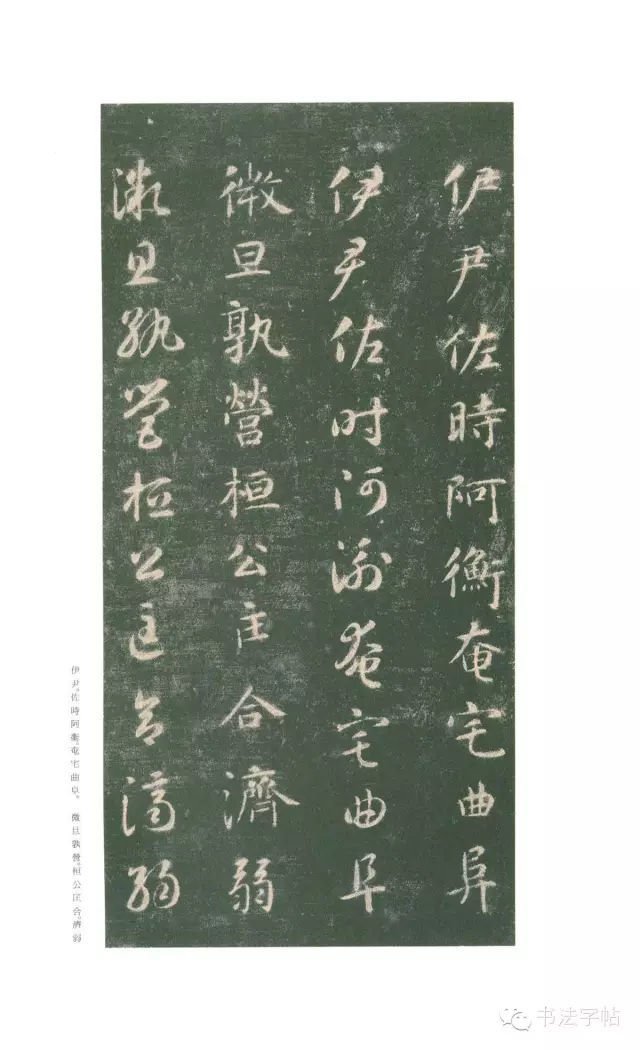 伊尹佐時阿衡奄宅曲阜
伊尹佐时阿衡奄宅曲阜
微旦孰營桓公匡合濟弱
微旦孰營桓公匡合濟弱
伊尹。佐時阿衡。奄宅曲阜。 微旦孰營。桓公匡合。濟弱
书法字帖